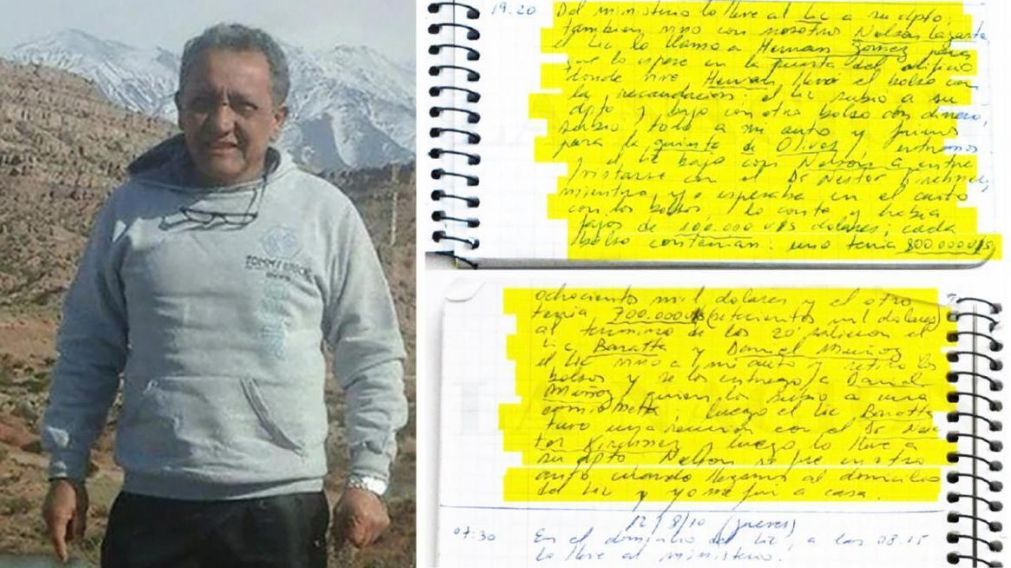 TOMMY
19.20 Del ministerio lo lleve al Lic a su dpto,
tambien vino con nosotro Nelson Lazarte
el Lic lo llamo a Hernan Gomez para
que lo espere en la puerta del edificio
donde vive Hernan llevo el bolso con
la recaudacion; el Lic subio a su
dpto y bajo con otro bolso con dinero,
subio todo a mi auto y fuimos
para la quinta de Olivos, entramos
y el Lic bajo con Nelson a entre
vistarse con el Dr Nestor Kirchner,
mientra yo esperaba en el auto
con los bolsos, lo conte y habia
fajos de 100.000 U$S dolares; cada
bolso contenian: uno tenia 800.000 U$S
ochociento mil dolares y el otro
tenia 700.000 U$S (setecientos mil dolares)
al termino de los 20' salieron el
Lic Baratta y Daniel Muñoz
el Lic vino a mi auto y retiro los
bolsos y se los entrego a Daniel
Muñoz, quien los subio a una
camioneta; luego el Lic Baratta
tuvo una reunion con el Dr Nes
tor Kirchner, luego lo lleve a
su dpto Nelson se fue en otro
auto cuando llegamos al domicilio
del Lic y yo me fui a casa.
12/8/10 (jueves)
07:30 En el domicilio del Lic, a las 08.15
lo lleve al ministerio.